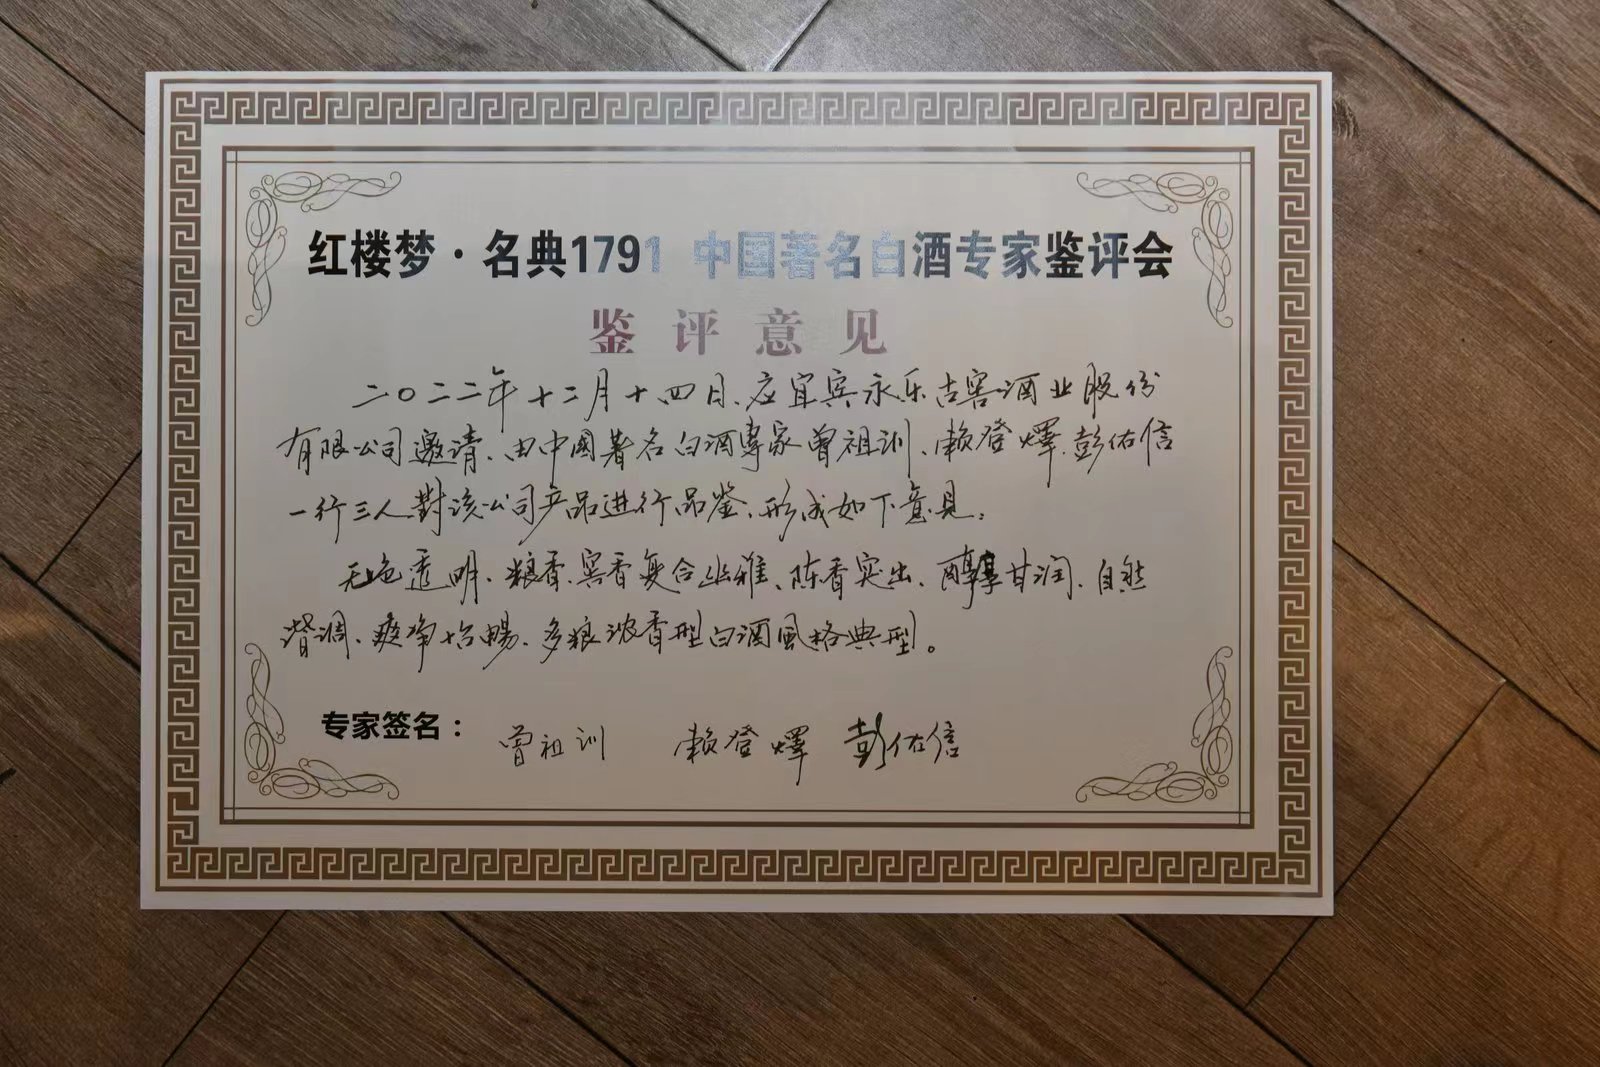 红楼梦·名典1791 中国著名白酒专家鉴评会
鉴评意见
二〇二二年十二月十四日、应宜宾永乐古窖酒业股份
有限公司邀请、由中國著名白酒專家曾祖训、赖登燡、彭佑信
一行三人對该公司产品进行品鉴、形成如下意見：
无色透明、粮香、窖香复合幽雅、陈香突出、醇厚甘润、自然
谐调、爽净怡暢、多粮浓香型白酒風格典型。
专家签名：
曾祖训 赖登燡 彭佑信